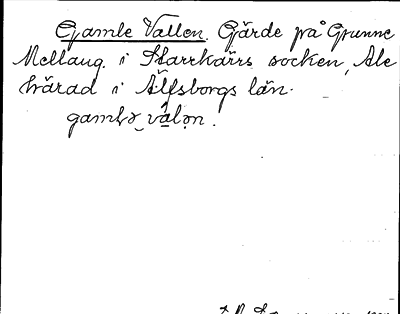 Gamle Vallen. Gärde på Grunne
Mellaug. i Starrkärrs socken, Ale
härad i Älfsborgs län.